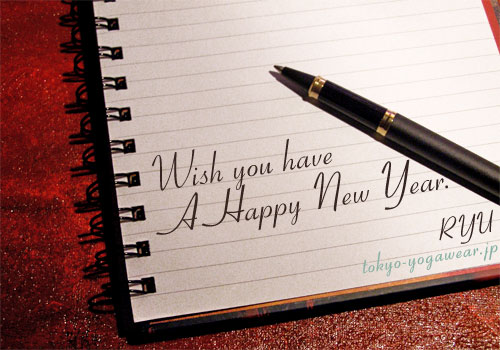 Wish you have
A Happy New Year.
RYU
tokyo-yogawear.jp